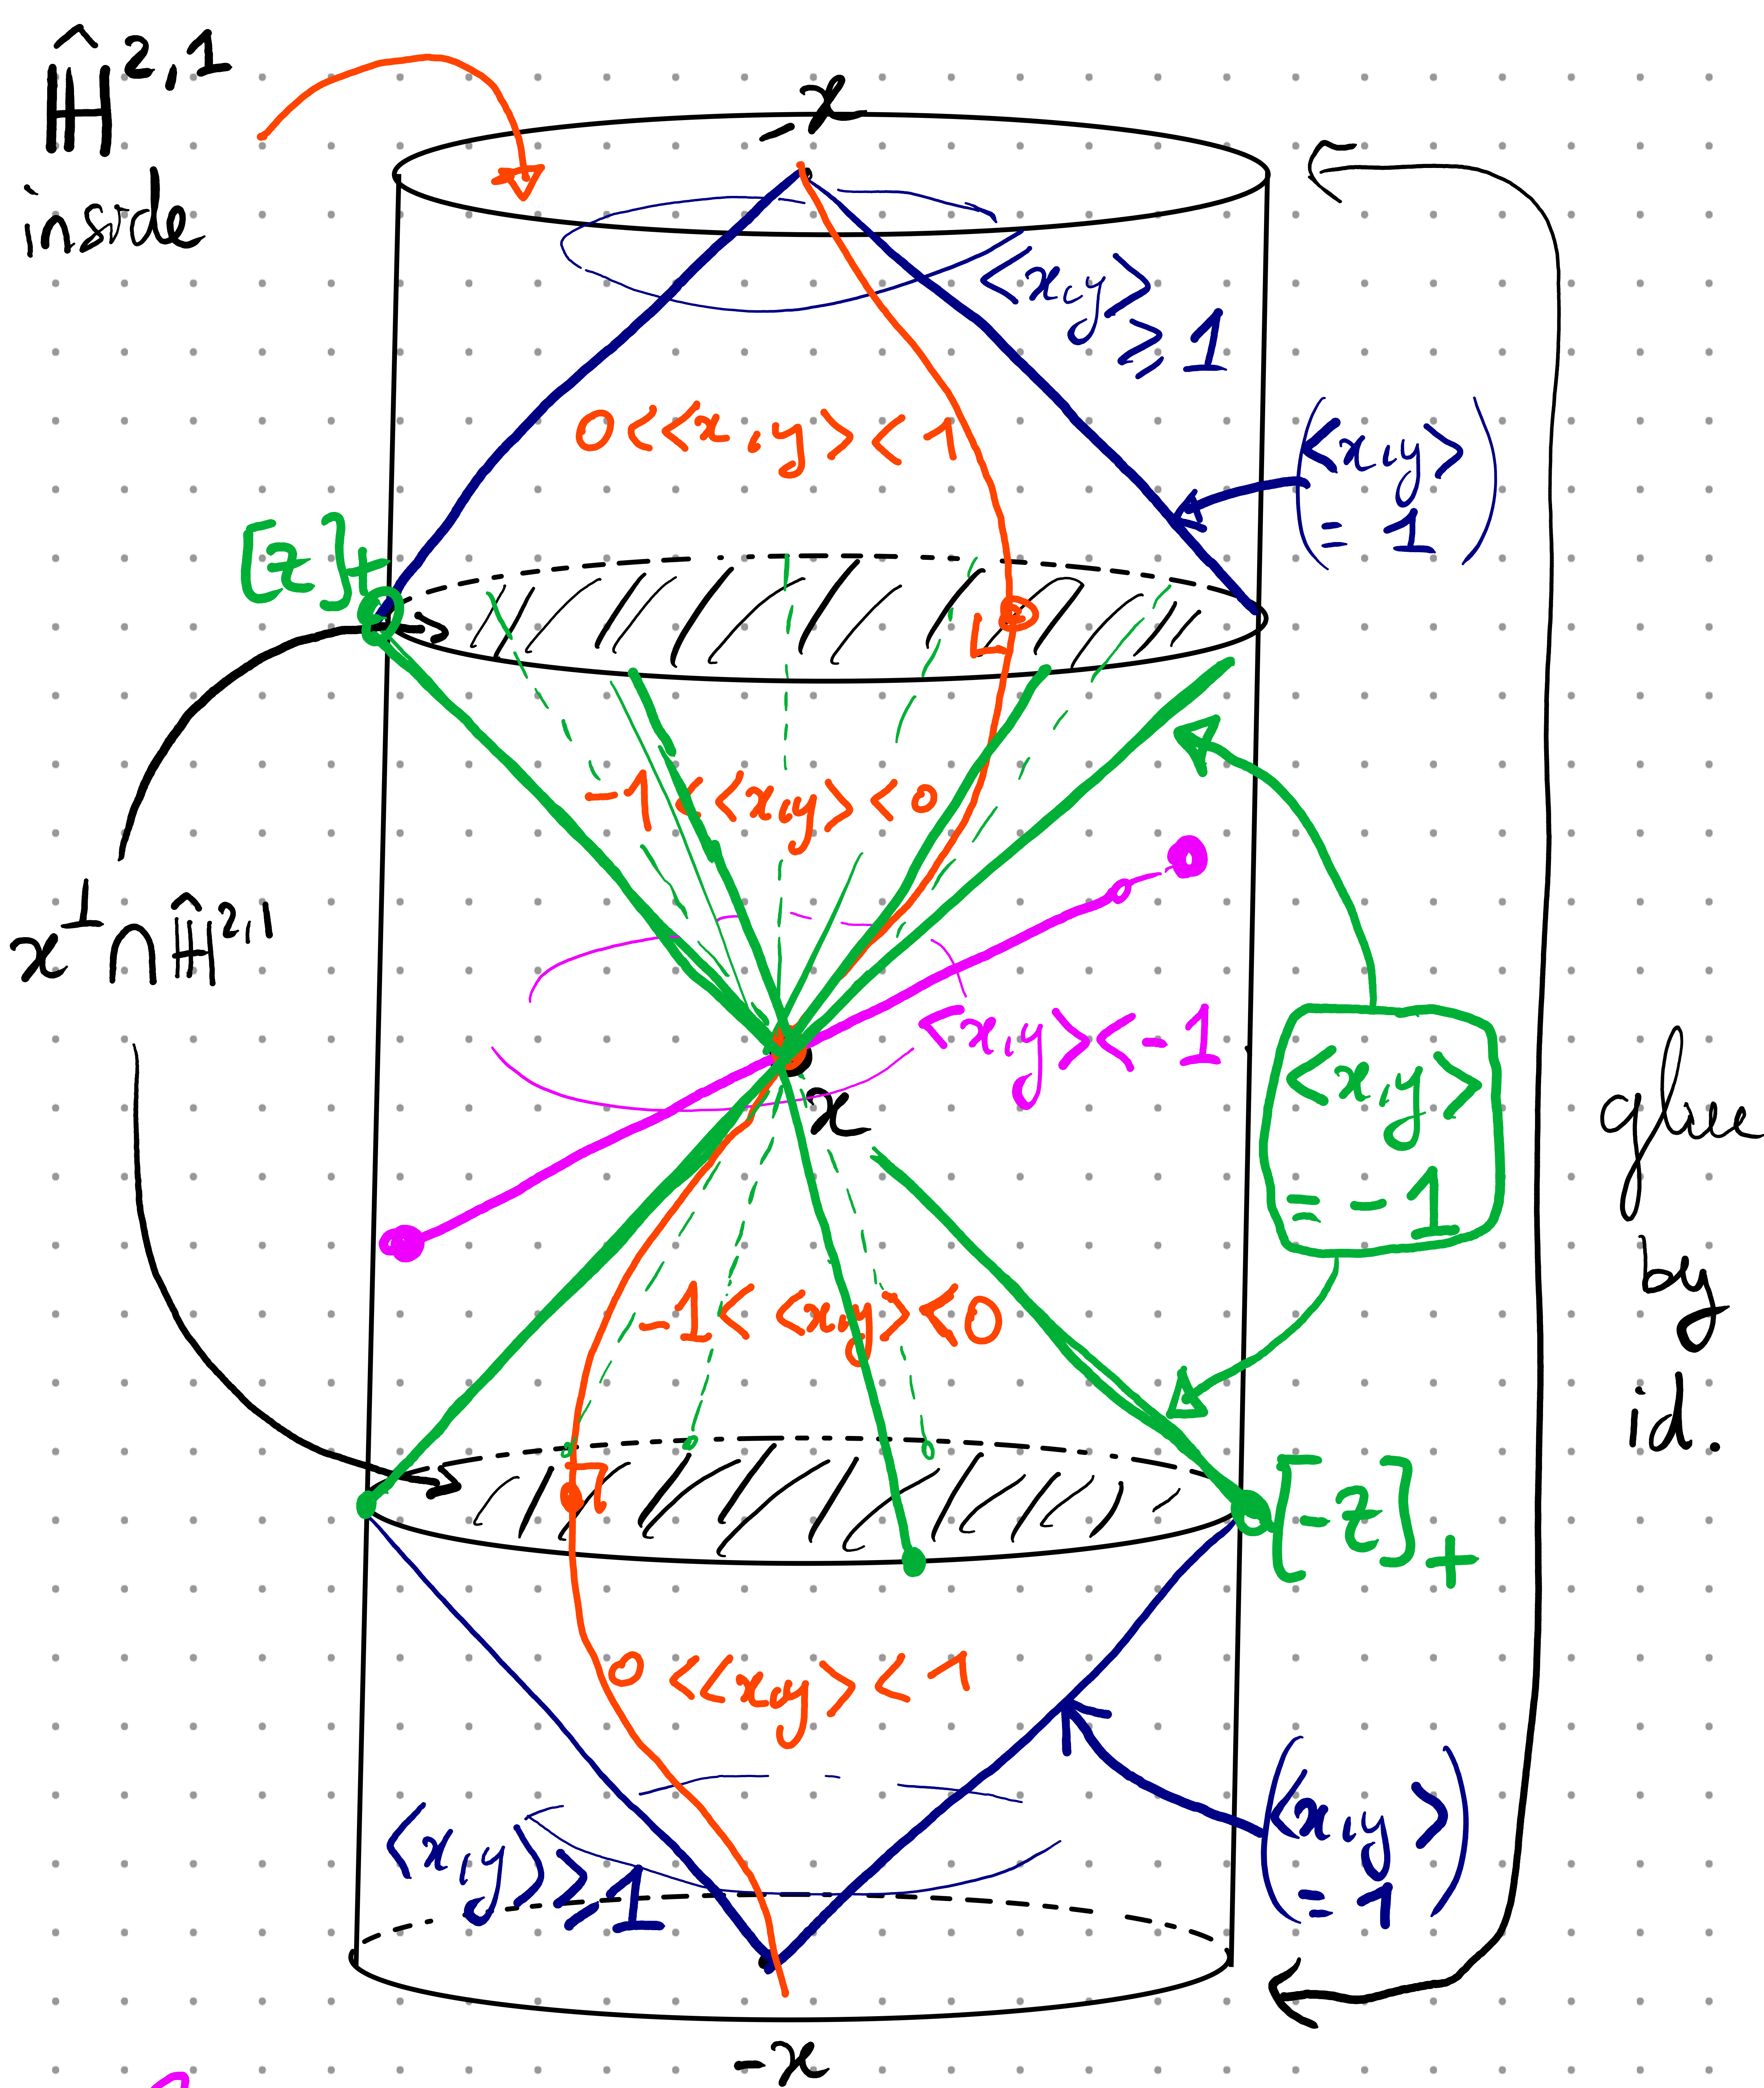 Ĥ²,¹
inside
-x
<x,y>
≥ 1
0<<x,y><1
(<x,y>
= 1)
[z]+
-1<<x,y><0
x^⊥∩Ĥ²,¹
<x,y><-1
x
<x,y>
= -1
glue
by
id.
-1<<x,y><0
[-z]+
0<<x,y><1
<x,y>≥1
(<x,y>
= 1)
-x